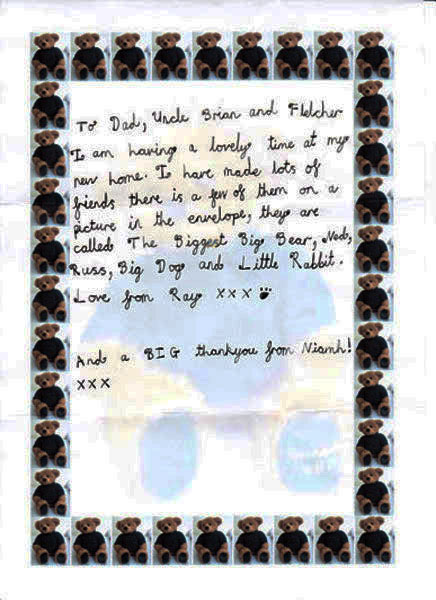 To Dad, Uncle Brian and Fletcher
I am having a lovely time at my
new home. I have made lots of
friends there is a few of them on a
picture in the envelope, they are
called The Biggest Big Bear, Ned,
Russ, Big Dog and Little Rabbit.
Love from Ray x x x
And a BIG thankyou from Niamh!
xxx